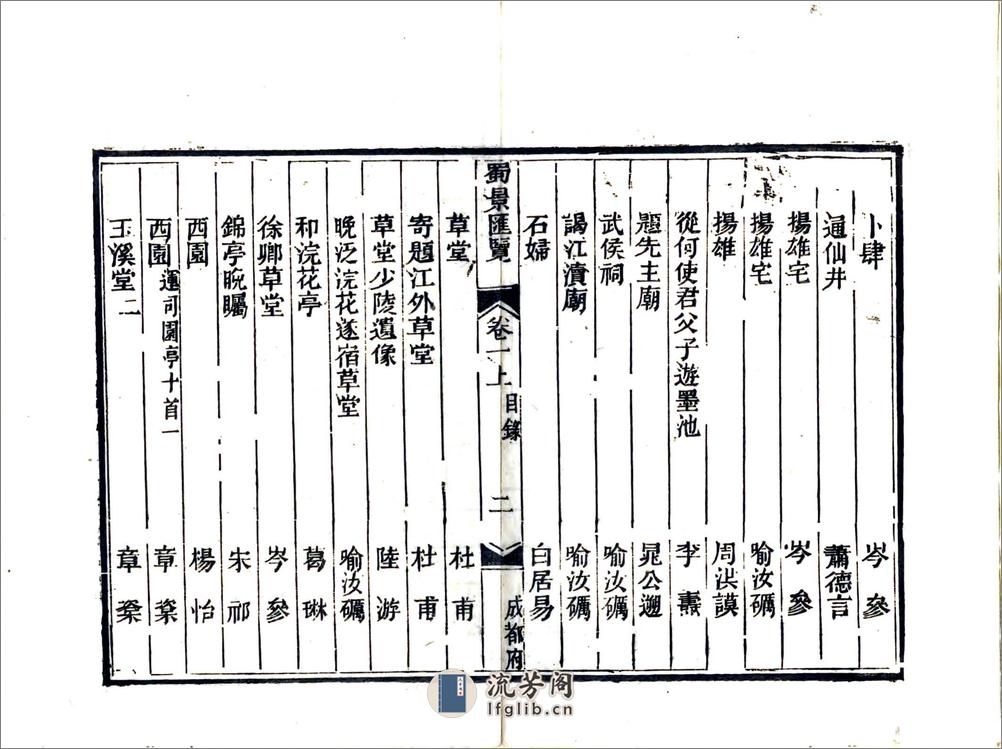 卜肆 岑參
通仙井 蕭德言
揚雄宅 岑參
揚雄宅 喻汝礪
揚雄 周洪謨
從何使君父子遊墨池 李燾
題先主廟 晁公遡
武侯祠 喻汝礪
謁江瀆廟 喻汝礪
石婦 白居易
蜀景匯覽 卷一上 目錄 二 成都府
草堂 杜甫
寄題江外草堂 杜甫
草堂少陵遺像 陸游
晚泛浣花遂宿草堂 喻汝礪
和浣花亭 葛琳
徐卿草堂 岑參
錦亭晚矚 朱祁
西園 楊怡
西園 運司園亭十首一 章楶
玉溪堂二 章楶
流芳阁
lfglib.cn